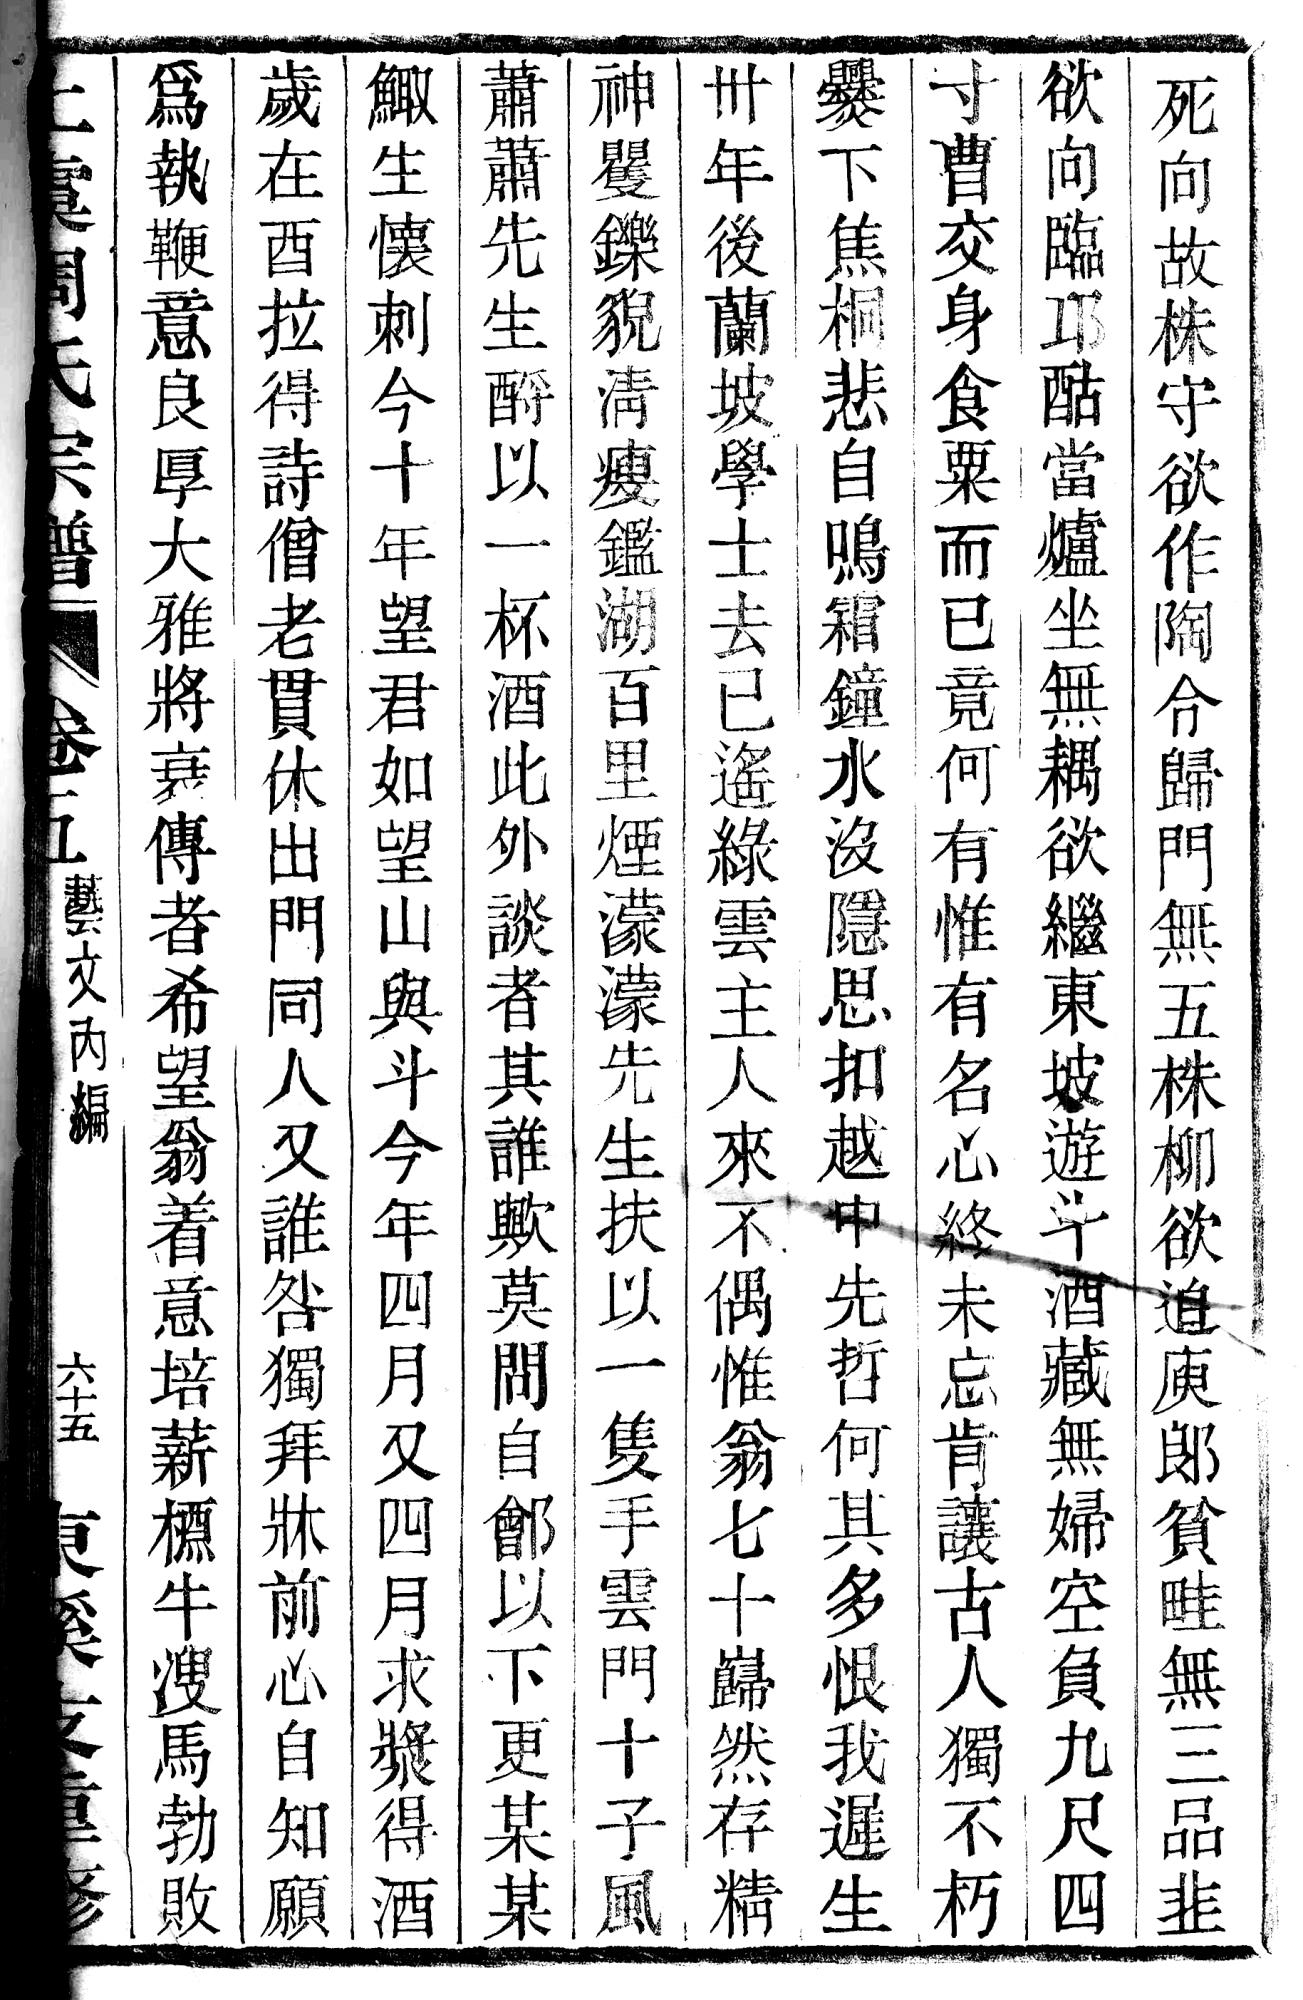 死向故株守欲作陶令歸門無五株柳欲迫庾郎貧畦無三品韭
欲向臨邛酤當爐坐無耦欲繼東坡遊斗酒藏無婦空負九尺四
寸曹交身食粟而已竟何有惟有名心終未忘肯讓古人獨不朽
爨下焦桐悲自鳴霜鐘水沒隱思扣越中先哲何其多恨我遲生
卅年後蘭坡學士去已遙綠雲主人來不偶惟翁七十巋然存精
神矍鑠貌清瘦鑑湖百里煙濛濛先生扶以一隻手雲門十子風
蕭蕭先生酹以一杯酒此外談者其誰歟莫問自鄶以下更某某
鯫生懷刺今十年望君如望山與斗今年四月又四月求漿得酒
歲在酉拉得詩僧老貫休出門同人又誰咎獨拜牀前心自知願
爲執鞭意良厚大雅將衰傳者希望翁着意培薪槱牛溲馬勃敗
上虞周氏宗譜 卷十五 藝文內編 六十五 東溪支重修